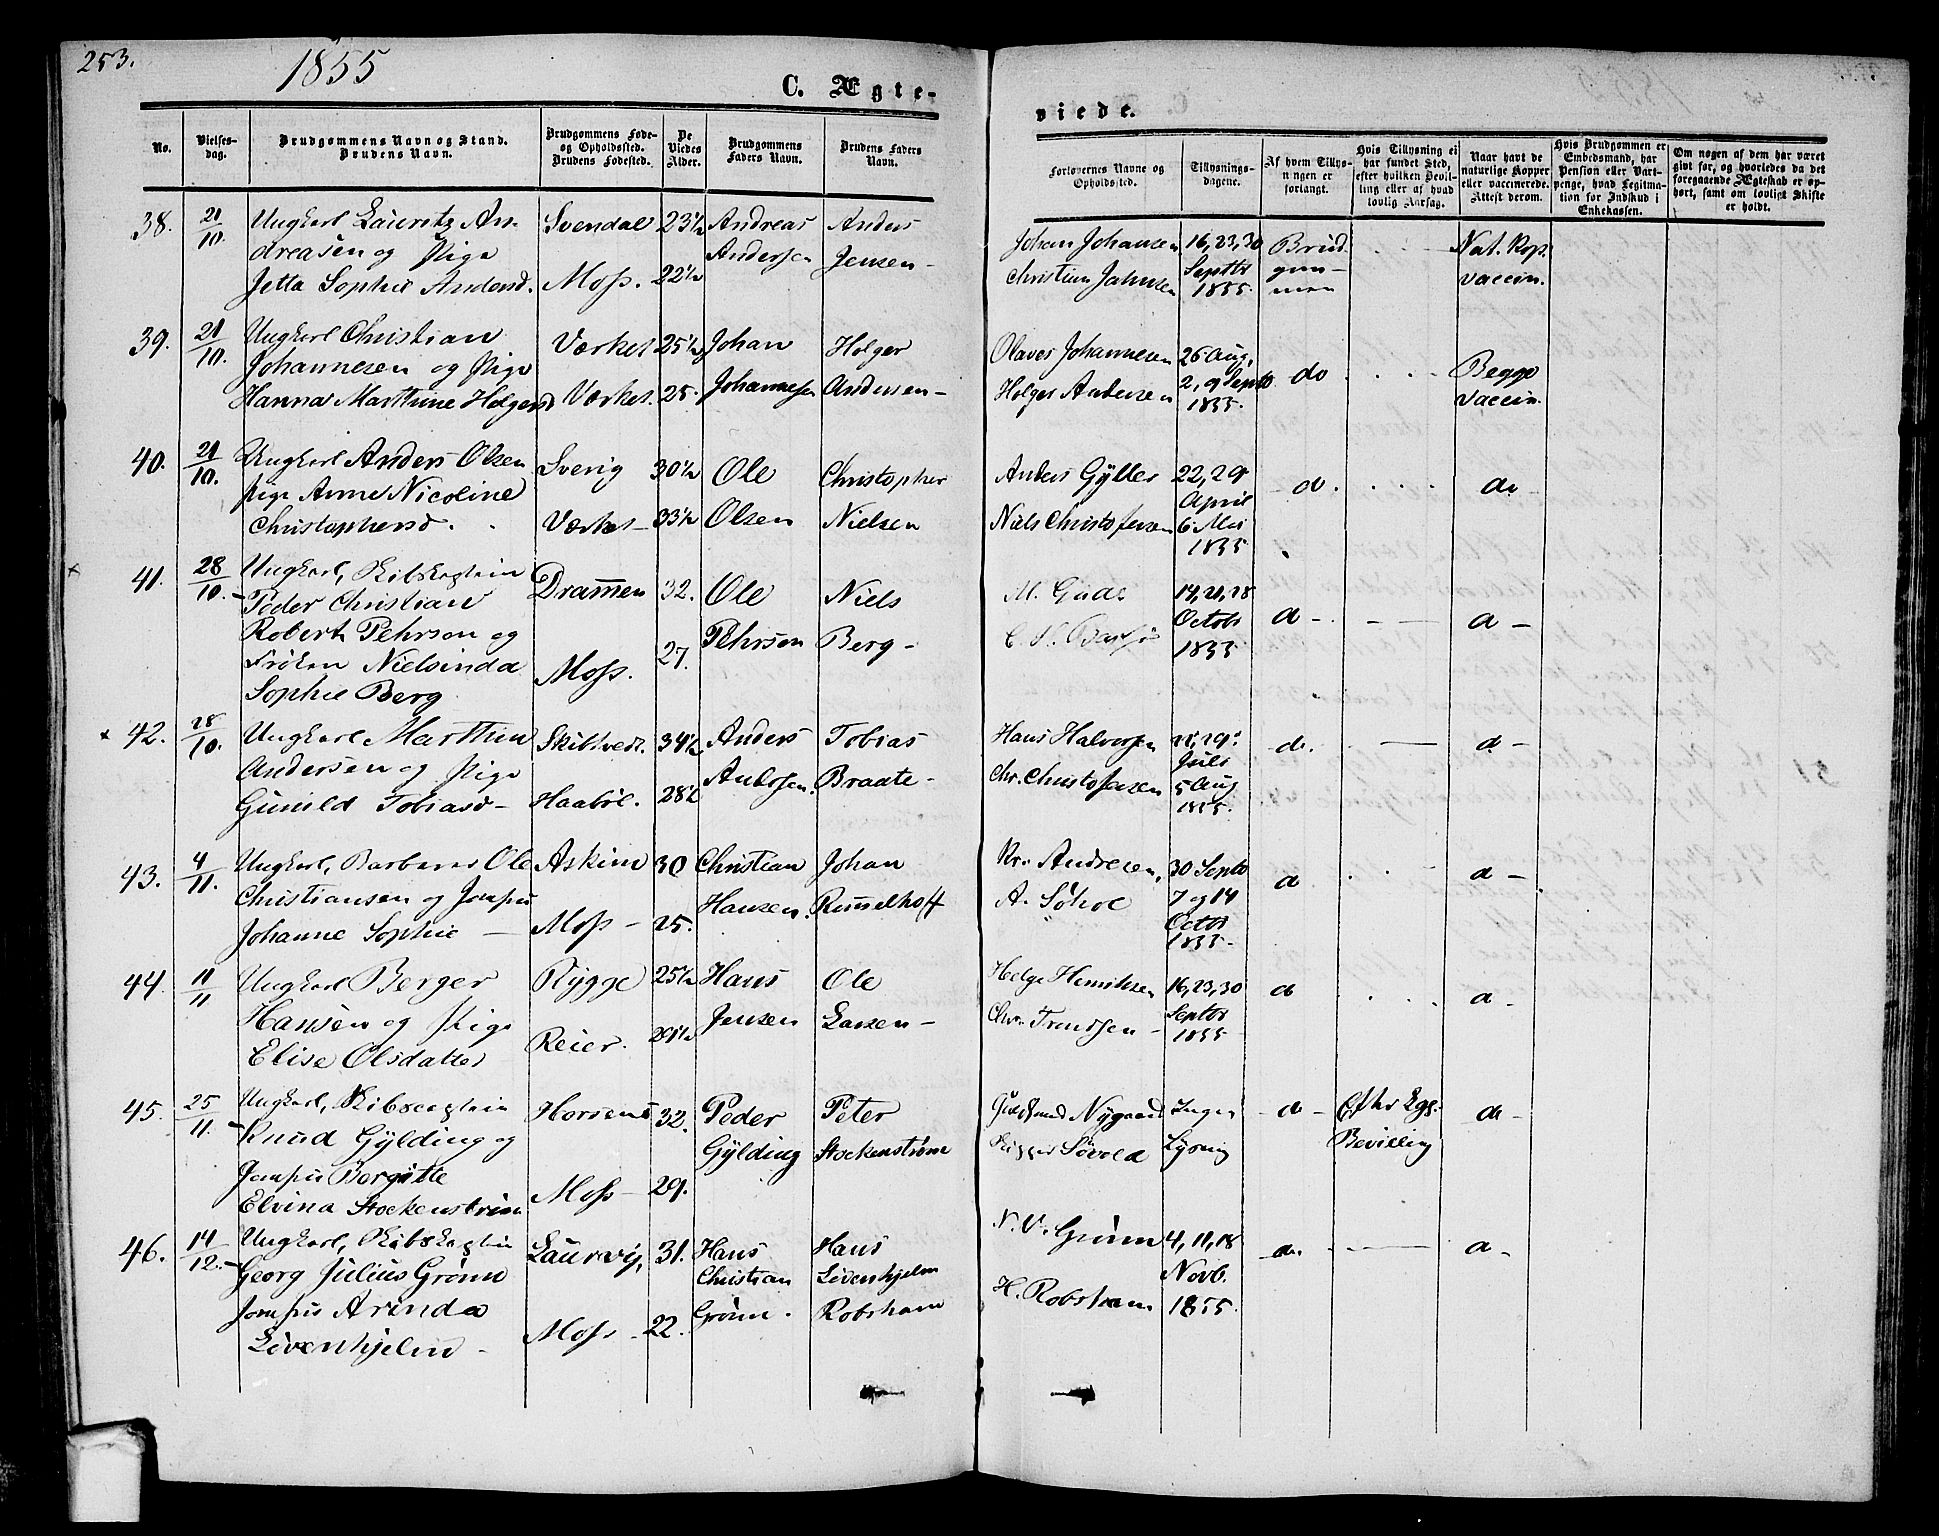 253.
1855
C. Ægte-
viede.
No.
Vielses-
dag.
Brudgommens Navn og Stand.
Brudens Navn.
Brudgommens Føde-
og Opholdssted.
Brudens Fødested.
De
Viedes
Alder.
Brudgommens
Faders Navn.
Brudens Faders
Navn.
Forlovernes Navne og
Opholdssted.
Tillysnings-
dagene.
Af hvem Tillys-
ningen er
forlangt.
Hvis Tillysning ei
har fundet Sted,
efter hvilken Bevil-
ling eller af hvad
lovlig Aarsag.
Naar havt de
naturlige Kopper
eller vaccinerede.
Attest derom.
Hvis Brudgommen er
Embedsmand, har
Pension eller Vart-
penge, hvad Legitima-
tion for Indskud i
Enkekassen.
Om nogen af dem har været
givt før, og hvorledes da det
foregaaende Ægteskab er op-
hørt, samt om lovligt Skifte
er holdt.
38. 21/10. Ungkarl Lauritz An- Svendal 23½ Andreas Anders
dreasen og Pige Andersen Jensen-
Jetta Sophie Andersd. Moss. 22½
Johan Johansen 16,23,30 Brud- Nat. Kop.
Christian Jahnsen Septbr gom- vaccin.
1855. men
39. 21/10. Ungkarl Christian Værket 25½ Johan Holger
Johannesen og Pige Johannesen Andersen-
Hanna Marthine Holgersd Værket. 25.
Olaves Johannesen 26 Aug, do Begge
Holger Andersen 2, 9 Septb vaccin.
1855.
40. 21/10. Ungkarl Anders Olsen Sverig 30½ Ole Christopher
Pige Anne Nicoline Olsen Nielsen
Christophersd. Værket- 33½
Anders Gyller 22,29 d. do
April
Niels Christofersen 6 Mai
1855
41. 28/10. Ungkarl, Skibskaptein Drammen 32. Ole Niels
Peder Christian
Robert Pehrson og Pehrson Berg-
Frøken Nielsinda Moss. 27.
Sophie Berg
M. Gude 14,21,28
Octob d- d-
1855
42. 28/10. Ungkarl Marthin Skibtvedt. 34½ Anders Tobias
Andersen og Pige Andersen. Braate-
Gunild Tobiasd- Haabøl. 28½
Hans Halvorsen 22,29 d. d-
Juli
Chr. Christofersen 5 Aug
1855.
43. 4/11. Ungkarl, Barberer Ole Askim 30 Christian Johan
Christiansen og Jomfru Hansen. Rummelhoff
Johanne Sophie - Moss- 25.
Kr. Andresen, 30 Septb d d-
A. Søhol 7 og 14
Octbr
1855.
44. 11/11 Ungkarl Berger Rygge 25½ Hans Ole
Hansen og Pige Jensen Larsen-
Elise Olsdatter Reier. 29½
Helge Henriksen 16,23,30 d d-
Chr. Trondsen- Septbr
1855
45. 25/11. Ungkarl, Skibscaptein Horsens 32. Peder Peter
Knud Gylding og Gylding Stockenstrøm
Jomfru Bergitte
Elvina Stockenstrøm Moss- 29.
Guldsmed Nygaard Ingen d- Efter Kgl. do-
Rigger Søvold Lysning Bevilling
46. 14/12. Ungkarl, Skibskaptein Laurvig, 31. Hans Hans
Georg Julius Grønn Christian Løvenhjelm
Jomfru Arinda Grønn. Robsham
Løvenhjelm- Moss- 22.
N. V. Grønn 4,11,18 d. d-
Novb.
H. Robsham 1855.